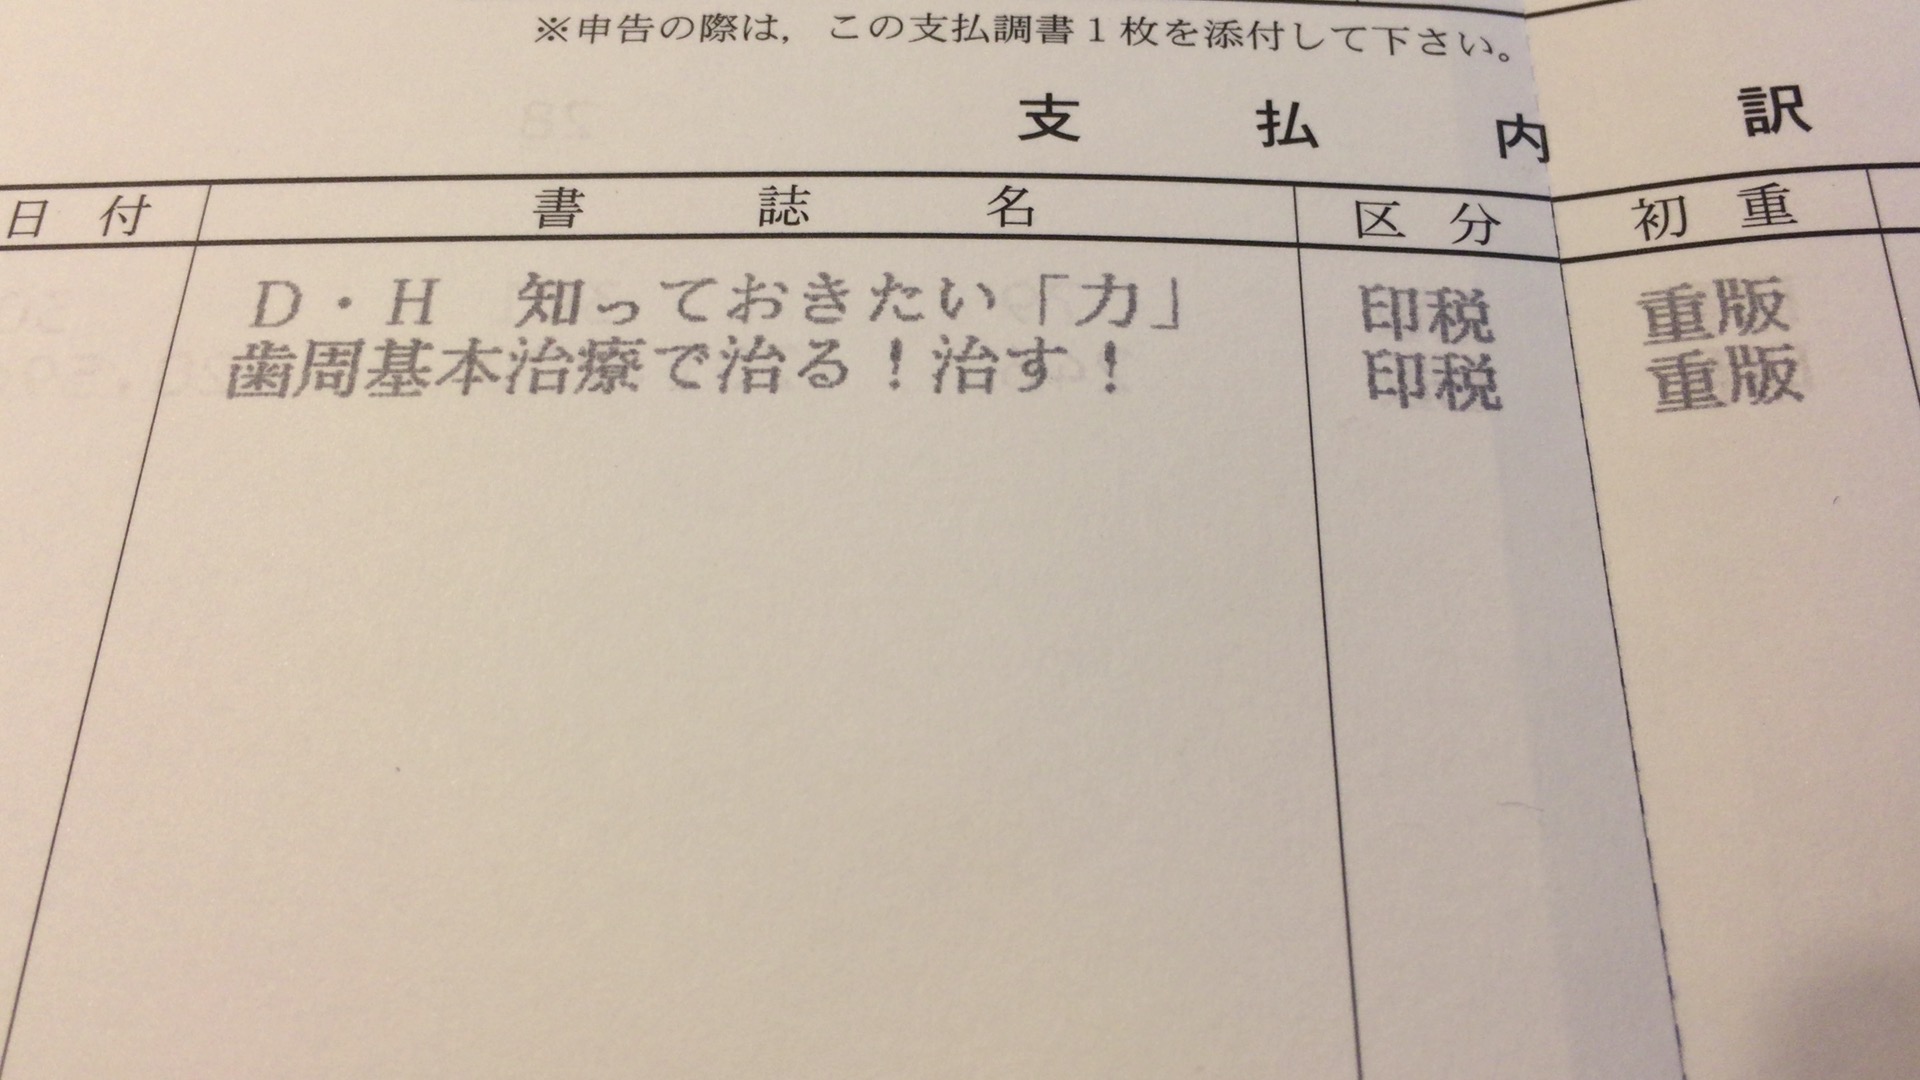 ※申告の際は，この支払調書1枚を添付して下さい。
支払内訳
日付 書誌名 区分 初重
D・H 知っておきたい「力」 印税 重版
歯周基本治療で治る！治す！ 印税 重版